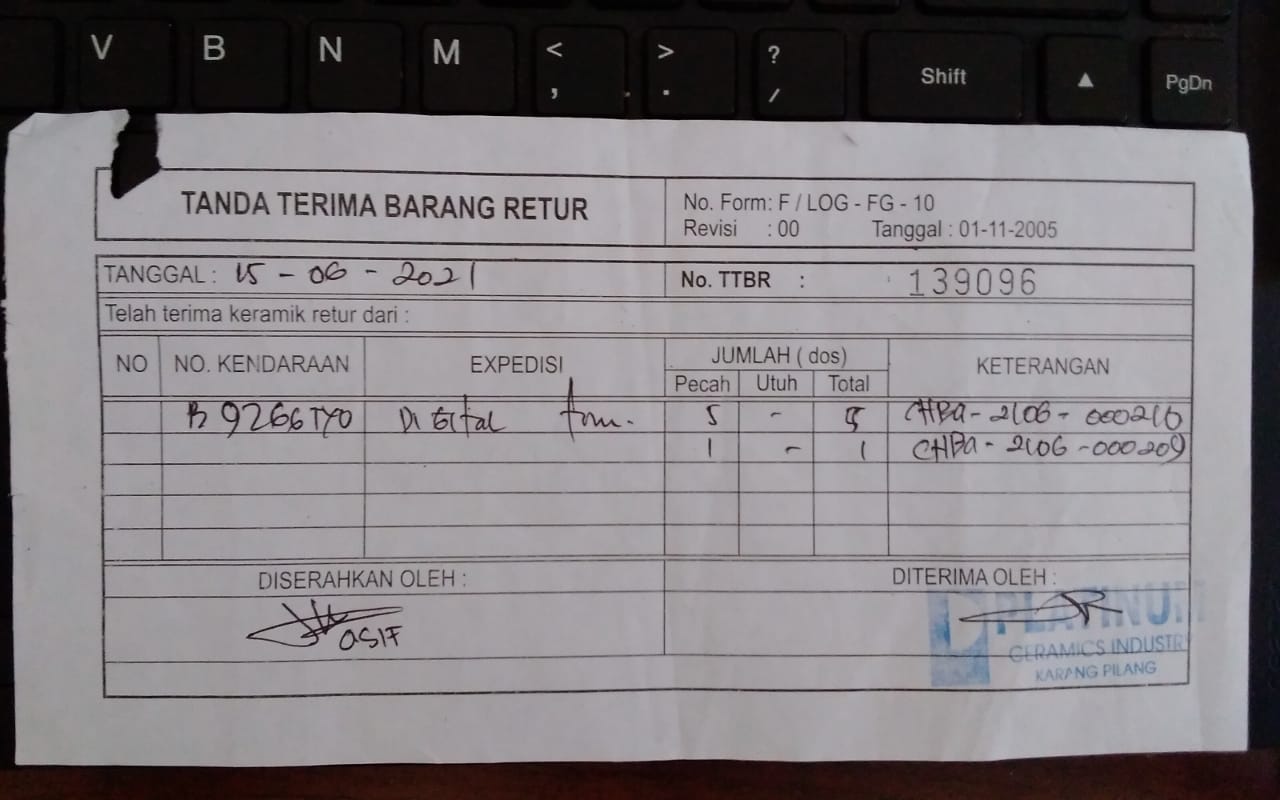 V B N M < , > . ? / Shift ▲ PgDn
TANDA TERIMA BARANG RETUR
No. Form: F / LOG - FG - 10
Revisi : 00 Tanggal : 01-11-2005
TANGGAL : 15 - 06 - 2021
No. TTBR : 139096
Telah terima keramik retur dari :
NO NO. KENDARAAN EXPEDISI JUMLAH ( dos) KETERANGAN
Pecah Utuh Total
B 9266 TYO Digital 5 - 5 CHBa - 2106 - 000210
1 - 1 CHBa - 2106 - 000209
DISERAHKAN OLEH : DITERIMA OLEH :
ASIF
PLATINUM
CERAMICS INDUSTRY
KARANG PILANG